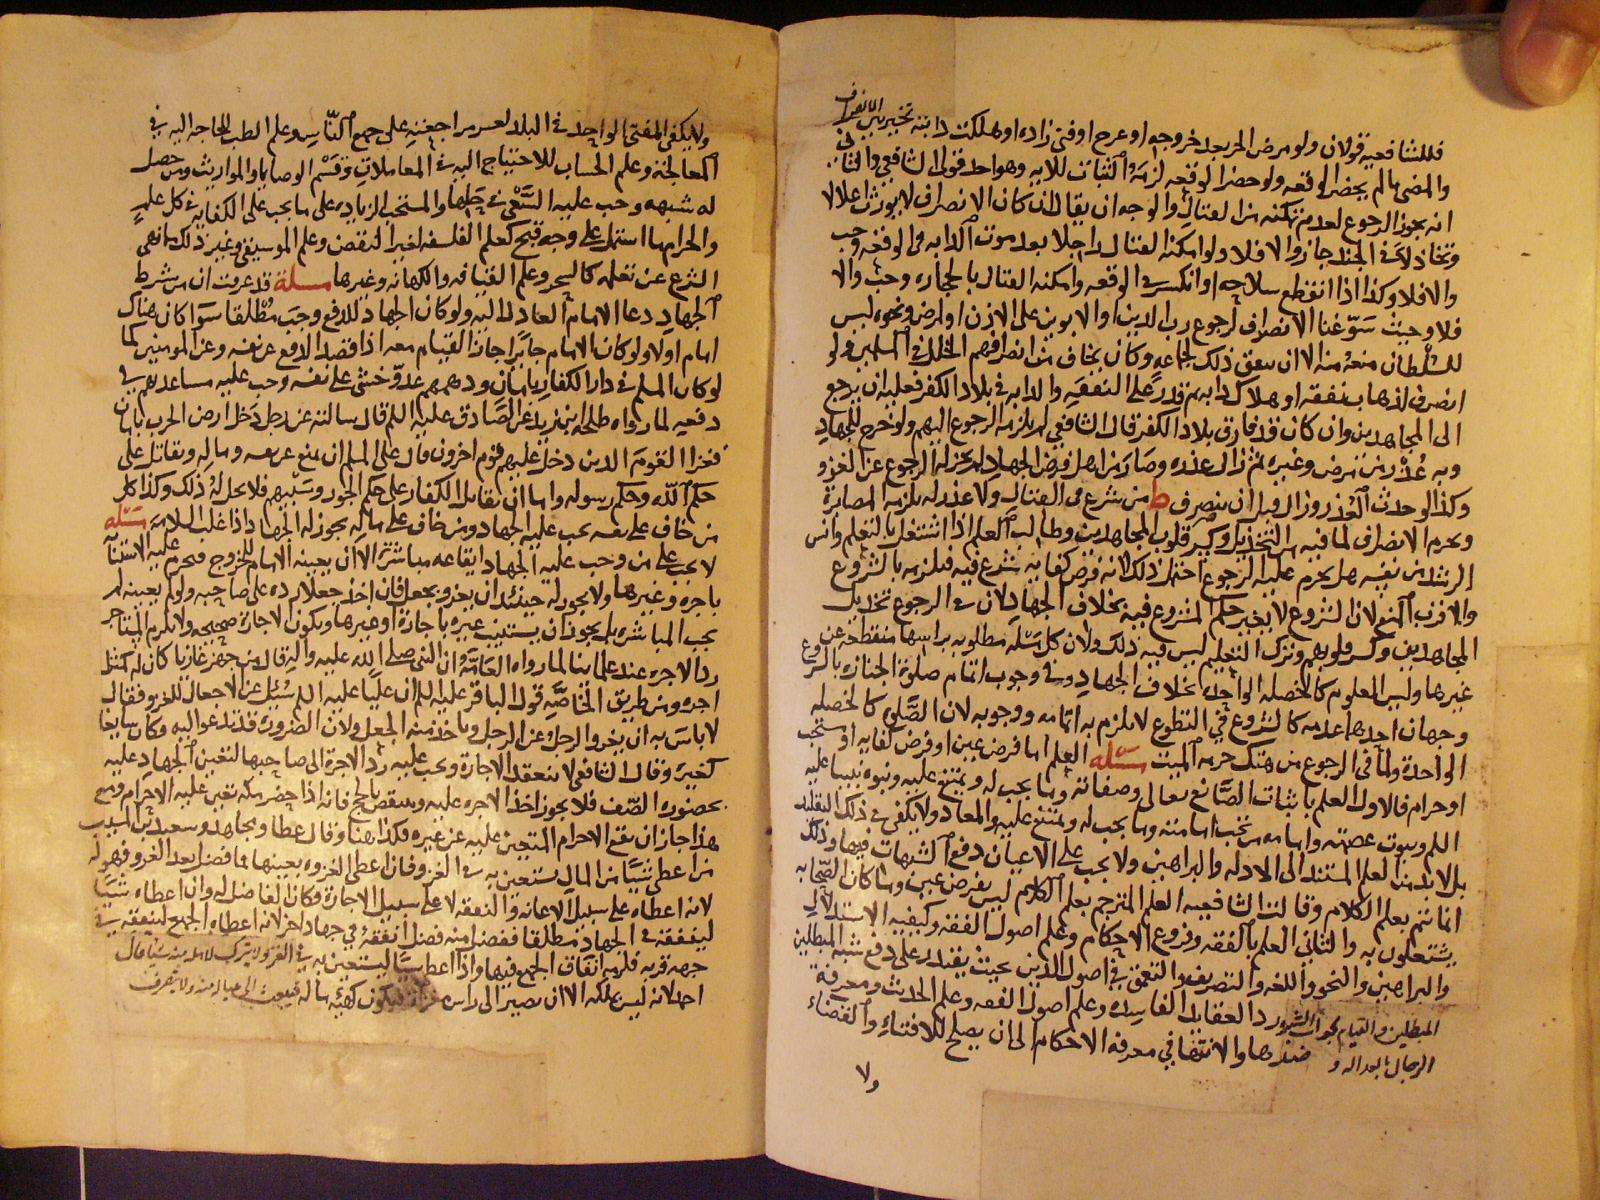 فللشافعيه قولان ولو مرض المر بعد خروجه او عرج او فنى زاده او هلكت دابته تخير بين الانصراف
والمضى ما لم يحضر الوقعه ولو حضر الوقعه لزمه الثبات للايه وهو احد قولى الشافعي والثانى
انه يجوز الرجوع لعدم تمكنه من القتال والوجه ان يقال ان كان الانصراف لا يورث اعلالا
وتخاذلا فى الجند جاز والا فلا ولو امكنه القتال راجلا بعد موت الدابه فى الوقعه وجب
والا فلا وكذا اذا انقطع سلاحه او انكسر فى الوقعه وامكنه القتال بالحجاره وجب والا
فلا وحيث سوغنا الانصراف لرجوع رب الدين او الابوين على الاذن او لمرض ونحوه ليس
للسلطان منعه منه الا ان يتفق ذلك لجماعه وكان يخاف من انصرافهم الخلل فى المسلمين ولو
انصرف لذهاب نفقه او هلاك دابه ثم قدر على النفقه والدابه فى بلاد الكفر فعليه ان يرجع
الى المجاهدين وان كان قد فارق بلاد الكفر قال الشافعي لم يلزمه الرجوع اليهم ولو خرج للجهاد
وبه عذر من مرض وغيره ثم زال عذره وصار من اهل فرض الجهاد لم يجز له الرجوع عن الغزو
وكذا لو حدث العذر وزال قبل ان ينصرف ط من شرع فى القتال ولا عذر له يلزمه المصابرة
ويحرم الانصراف لما فيه من التخذيل وكسر قلوب المجاهدين وطالب العلم اذا اشتغل بالتعلم وانس
الرشد من نفسه هل يحرم عليه الرجوع احتمل ذلك لانه فرض كفايه شرع فيه فيلزمه بالشروع
والاقرب المنع لان الشروع لا يغير حكم المشروع فيه بخلاف الجهاد لان فى الرجوع تخذيل
المجاهدين وكسر قلوبهم وترك التعليم ليس فيه ذلك ولان كل مسئله مطلوبه براسها منقطعه عن
غيرها وليس العلوم كالخصله الواحده بخلاف الجهاد وفى وجوب اتمام صلوة الجنازه بالشروع
وجهان احدهما عدمه كالشروع في التطوع لا يلزم به اتمامه ووجوبه لان الصلوة كالخصله
الواحدة ولما فى الرجوع من هتك حرمه الميت مسئله العلم اما فرض عين او فرض كفايه او مستحب
او حرام فالاول العلم باثبات الصانع تعالى وصفاته وما يجب له ويمتنع عليه ونبوه نبينا عليه
السلم وثبوت عصمته وامامه من تجب امامته وما يجب له ويمتنع عليه والمعاد ولا يكفى فى ذلك التقليد
بل لا بد من العلم المستند الى الادله والبراهين ولا يجب على الاعيان دفع الشبهات فيها وذلك
انما يتم بعلم الكلام وقالت الشافعيه العلم المترجم بعلم الكلام ليس بفرض عين وما كان الصحابه
يشتغلون به والثانى العلم بالفقه وفروع الاحكام وعلم اصول الفقه وكيفيه الاستدلال
والبراهين والنحو واللغه والتصريف والتعمق فى اصول الدين بحيث يقتدر على دفع شبه المبطلين
المبطلين والقيام بجواب الشبه ورد العقايد الفاسده وعلم اصول الفقه وعلم الحديث ومعرفة
الرجال بالعداله و ضدها والانتها فى معرفه الاحكام الى ان يصلح للافتاء والقضاء
ولا
ولا يكفى المفتى الواحد فى البلد لعسر مراجعته على جميع الناس وعلم الطب للحاجه اليه فى
المعالجة وعلم الحساب للاحتياج اليه فى المعاملات وقسم الوصايا والمواريث ومن حصل
له شبهه وجب عليه السعى فى حلها والمستحب الزياده على ما يجب على الكفايه فى كل علم
والحرام ما اشتمل على وجه قبح كعلم الفلسفه لغير النقض وعلم الموسيقى وغير ذلك مما نهى
الشرع عن تعلمه كالسحر وعلم القيافه والكهانه وغيرها مسئله قد عرفت ان من شرط
الجهاد دعا الامام العادل اليه ولو كان الجهاد للدفع وجب مطلقا سوا كان هناك
امام اولا ولو كان الامام جائرا جاز القيام معه اذا قصد الدفع عن نفسه وعن المومنين كما
لو كان المسلم فى دار الكفار بامان ودهمهم عدو خشى على نفسه وجب عليه مساعدتهم فى
دفعه لما رواه طلحه ابن زيد عن الصادق عليه السلم قال سالته عن رجل دخل ارض الحرب بامان
فغزا القوم الذين دخل عليهم قوم اخرون قال على المسلم ان يمنع عن نفسه وماله ويقاتل على
حكم الله وحكم رسوله واما ان يقاتل الكفار على حكم الجور وسنتهم فلا يحل له ذلك وكذا كل
من خاف على نفسه يجب عليه الجهاد ومن خاف على ماله يجوز له الجهاد اذا غلب السلامه مسئله
لا يجب على من وجب عليه الجهاد ايقاعه مباشرة الا ان يعينه الامام للخروج فيحرم عليه الاستنابه
باجره وغيرها ولا يجوز له حينئذ ان يغزو بجعل فان اخذ جعلا رده على صاحبه ولو لم يعينه لم
يجب المباشره بل يجوز ان يستنيب غيره باجارة او غيرها ويكون الاجارة صحيحه ولا يلزم المستاجر
رد الاجره عند علمائنا لما رواه العامه ان النبى صلى الله عليه واله قال من جهز غازيا كان له كمثل
اجره ومن طريق الخاصه قول الباقر عليه السلم ان عليا عليه السلم سئل عن الاجعال للغزو فقال
لا باس به ان يغزو الرجل عن الرجل وياخذ منه الجعل ولان الضرورة قد تدعوا اليه وكان سايغا
كغيره وقال الشافعى لا تنعقد الاجارة ويجب عليه رد الاجرة الى صاحبها لتعين الجهاد عليه
بحضوره الصف فلا يجوز اخذ الاجره عليه وينتقض بالحج فانه اذا حضر مكه تعين عليه الاحرام ومع
هذا جاز ان يقع الاحرام المتعين عليه عن غيره فكذا هنا وقال عطا ومجاهد وسعيد بن المسيب
من اعطى شيئا من المال يستعين به فى الغزو فان اعطى لغزوه بعينها فما فضل بعد الغزو فهو له
لانه اعطاه على سبيل الاعانه والنفقه لا على سبيل الاجارة فكان الفاضل له وان اعطاه شيئا
لينفقه فى الجهاد مطلقا ففضل منه فضل انفقه فى جهاد اخر لانه اعطاه الجميع لينفقه فى
جهه قربه فلزمه انفاق الجميع فيها واذا اعطى شيئا ليستعين به فى الغزو لا يترك لاهله منه شيئا قال
احمد لانه ليس يملكه الا ان يصير الى راس مغزاه فيكون كهيئه ماله فيبعث الى عياله منه ولا يتصرف